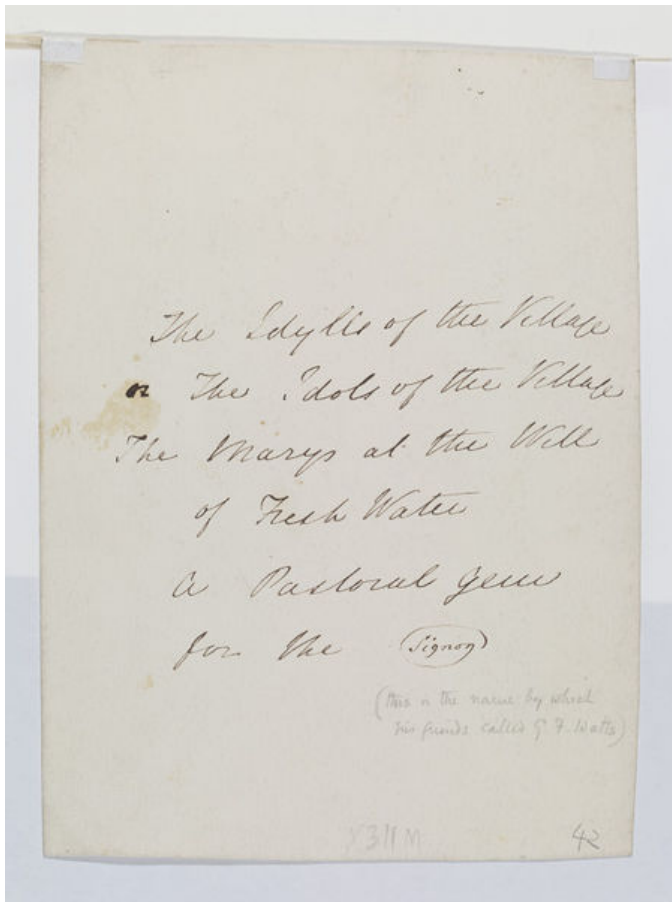 The Idylls of the Village
or The Idols of the Village
The Marys at the Well
of Fresh Water
a Pastoral gem
for the Signor
(this is the name by which
his friends called G. F. Watts)
X311M
42